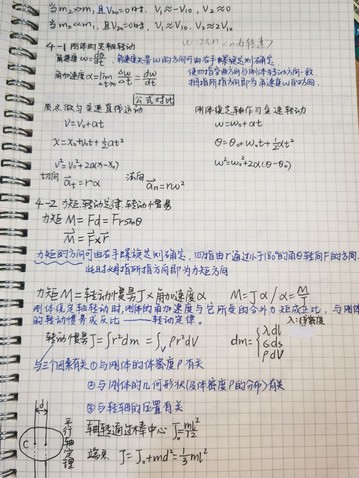 当m₂≫m₁, 且V₂₀=0时, V₁≈-V₁₀, V₂≈0
当m₂≪m₁, 且V₂₀=0时, V₁≈V₁₀, V₂≈2V₁₀
4-1 刚体的定轴转动
角速度 ω=dθ/dt, 角速度矢量ω的方向可由右手螺旋定则确定
使四指弯曲方向与刚体转动方向一致
角加速度 α=lim Δt→0 Δω/Δt=dω/dt 拇指所指方向即为角速度ω的方向.
公式对比
质点做匀变速直线运动 刚体绕定轴作匀变速转动
V=V₀+αt ω=ω₀+αt
X=X₀+V₀t+½at² θ=θ₀+ω₀t+½αt²
V²=V₀²+2α(X-X₀) ω²=ω₀²+2α(θ-θ₀)
切向 a⃗t=rα 法向 a⃗n=rω²
4-2 力矩 转动定律 转动惯量
力矩 M=Fd=Frsinθ
M⃗=F⃗×r⃗
力矩的方向可由右手螺旋定则确定, 四指由r通过小于180°的角θ转向F的方向.
此时拇指所指方向即为力矩方向
力矩M=转动惯量J×角加速度α M=Jα/α=M/J
刚体绕定轴转动时,刚体的角加速度与它所受的合外力矩成正比, 与刚体
的转动惯量成反比——转动定律.
λ:线密度
转动惯量 J=∫r²dm=∫v ρr²dV dm={λdl
σds
ρdV
与三个因素有关 ①与刚体的体密度ρ有关
②与刚体的几何形状(及体密度ρ的分布)有关
③与转轴的位置有关
d
C
平行轴定理
轴转通过棒中心 J₀=ml²/12
端点 J=J₀+md²=⅓ml²